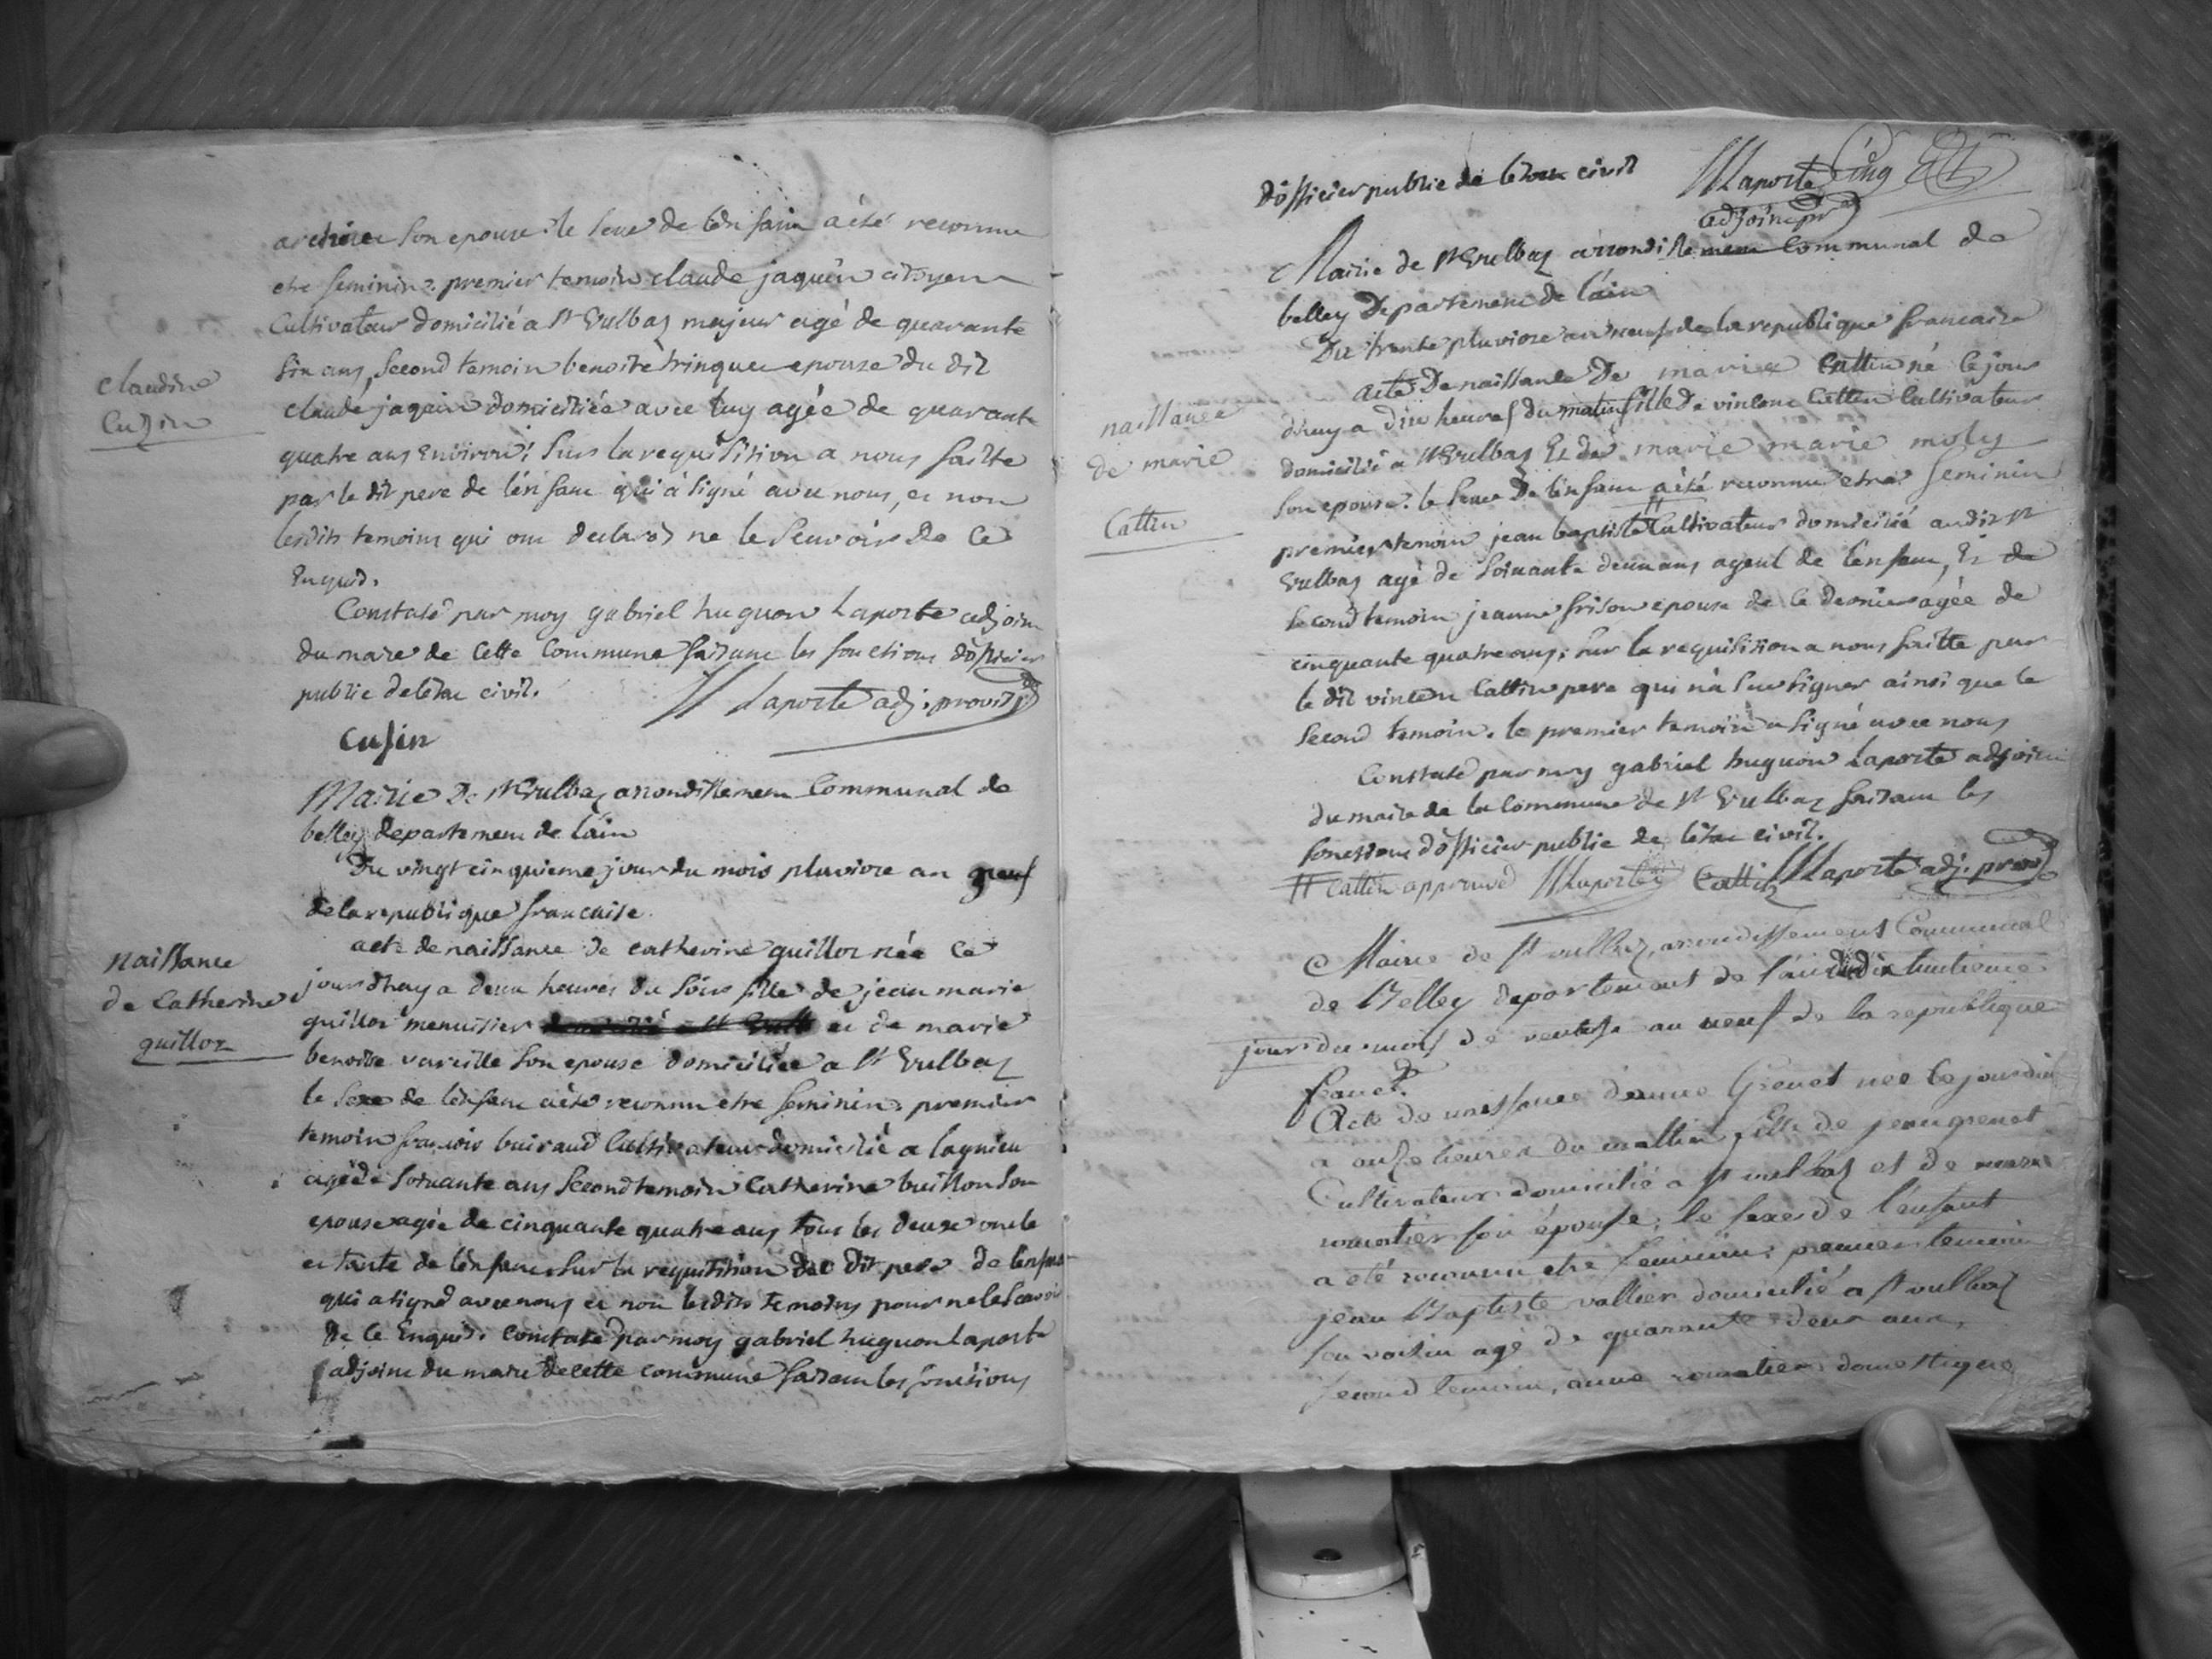 son epouse. le sexe de l'enfant a été reconnu
etre feminin. premier temoin claude jaquin citoyen
Cultivateur domicilié a St Vulbaz majeur agé de quarante
six ans, second temoin benoite trinquer epouse du dit
claude jaquin domiciliée avec luy agée de quarante
quatre ans environ; sur la requisition a nous faitte
par le dit pere de l'enfant qui a signé avec nous, et non
lesdits temoins qui ont declaré ne le scavoir de ce
Enquis.
Constaté par moy gabriel huguon Laporte adjoint
du maire de cette Commune faisant les fonctions d'officier
public de létat civil.
H Laporte adj. provis
Claudine
Cuzin
Cusin
Mairie De St Vulbaz arrondissement Communal de
belley departement de l'ain
Du vingt cinquieme jour du mois pluviose an neuf
de la republique francaise.
acte de naissance de catherine guilloz née ce
jourdhuy a deux heures du soir fille de jean marie
guilloz menuisier et de marie
benoite vareille son epouse domiciliée a St Vulbaz
le sexe de l'enfant a été reconnu etre feminin. premier
temoin francois buiraud Cultivateur domicilié a lagnieu
agé de soixante ans second temoin Catherine buillon son
epouse agée de cinquante quatre ans tous les deux oncle
et tante de l'enfant sur la requisition du dit pere de l'enfant
qui a signé avec nous et non lesdits temoins pour ne le scavoir
de ce Enquis. Constaté par moy gabriel huguon Laporte
adjoint du maire de cette commune faisant les fonctions
naissance
de Catherine
guilloz
d'officier public de létat civil
H Laporte
adjoint pr
Mairie de St Vulbaz arrondissement Communal de
belley Departement de l'ain
Du trente pluviose an neuf de la republique francaise
acte De naissance De marie Cattin né ce jour
d'huy a dix heures du matin fille de vincent Cattin Cultivateur
domicilié a St Vulbaz Et de marie marie moly
son epouse. le sexe De l'enfant a été reconnu etre feminin
premier temoin jean baptiste # Cultivateur domicilié audit St
Vulbaz agé de soixante deux ans ayeul de l'enfant, Et de
second temoin jeanne frison epouse de ce dernier agée de
cinquante quatre ans; sur la requisition a nous faitte par
le dit vincen Cattin pere qui n'a seu signer ainsi que le
second temoin. le premier temoin a signé avec nous
Constaté par moy gabriel huguon Laporte adjoint
du maire de la Commune de St Vulbaz faisant les
fonctions d'officier public de létat civil.
# Cattin approuvé H Laporte Cattin H Laporte adj. provis
naissance
de marie
Cattin
Mairie de St vulbaz, arrondissement Communal
de Belley departement de l'ain du dix huitieme
jour du mois de ventose an neuf de la republique
francse
Acte de naissance d'anne Grenet née ce jourdhui
a onze heures du mattin, fille de jean grenet
Cultivateur domicilié a St vulbaz et de
romatier son épouse; le sexe de l'enfant
a eté reconnu etre feminin; premier temoin
jean Baptiste vallier domicilié a St vulbaz
son voisin agé de quarante deux ans,
second temoin, anne romatier domestique